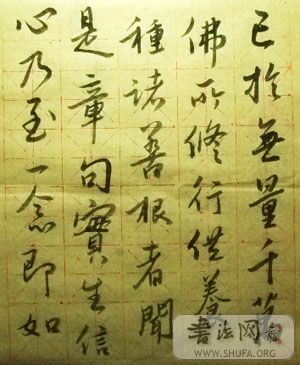 已於無量千萬
佛所修行供養
種諸善根者聞
是章句實生信
心乃至一念即如
書法网
WWW.SHUFA.ORG